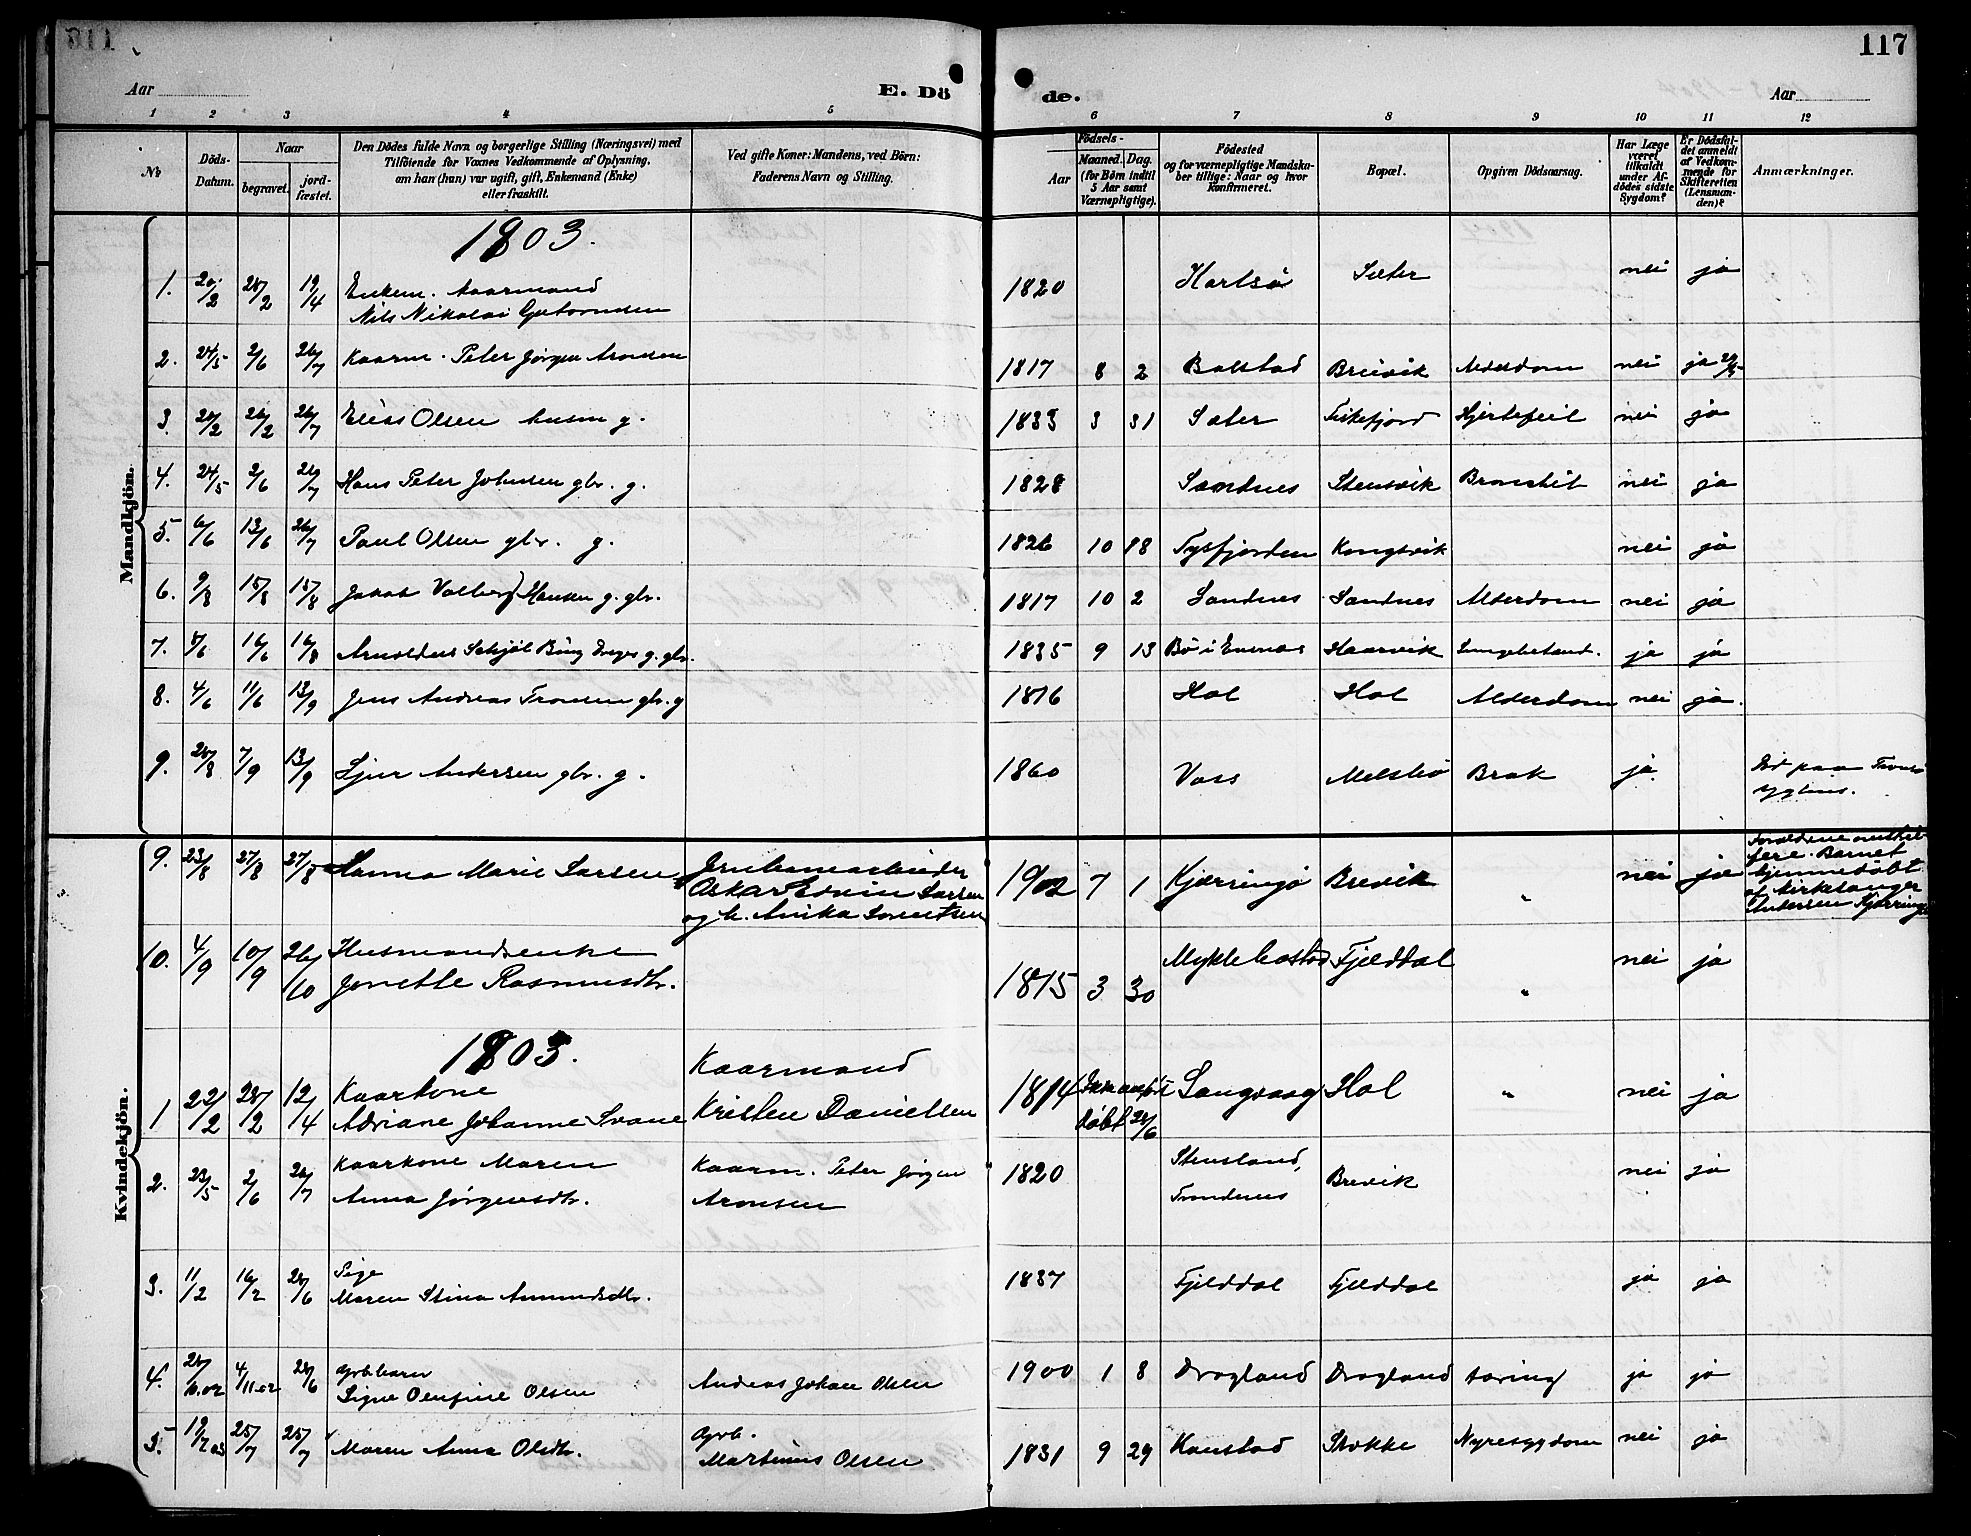 117
Aar
E. Dö de.
Aar
1 2 3 4 5 6 7 8 9 10 11 12
No
Döds-Datum.
Naar
begravet.
jord-fæstet.
Den Dödes fulde Navn og borgerlige Stilling (Næringsvei) med
Tilföiende for Voxnes Vedkommende af Oplysning,
om han (hun) var ugift, gift, Enkemand (Enke)
eller fraskilt.
Ved gifte Koner: Mandens, ved Börn:
Faderens Navn og Stilling.
Födsels-
Aar
Maaned. Dag.
(for Børn indtil
5 Aar samt
Værnepligtige).
Födested
og for værnepligtige Mandska-
ber tillige: Naar og hvor
Konfirmeret.
Bopæl.
Opgiven Dödsaarsag.
Har Læge
været
tilkaldt
under Af-
dödes sidste
Sygdom?
Er Dödsfal-
det anmeldt
af Vedkom-
mende for
Skifteretten
(Lensman-
den)?
Anmærkninger.
Mandkjön.
1903.
1. 20/2 28/2 19/4 Enkem. Kaarmand 1820 Sæter nei ja
Nils Nikolai
2. 24/5 2/6 26/7 Kaarm. Peter Jörgen Aronsen 1817 8 2 Bolstad Breivik Alderdom nei ja
3. 20/2 26/2 26/7 Elias Olsen husm g. 1835 3 31 Sæter Fiskefjord Hjertefeil nei ja
4. 24/5 2/6 26/7 Hans Peter Johnsen gbr. g. 1828 Sandnes Stensvik Bronchit nei ja
5. 6/6 13/6 26/7 Paul Olsen gbr. g. 1826 10 18 Tysfjorden Kongsvik nei ja
6. 9/8 15/8 15/8 Jakob Volberg Hansen g. gbr. 1817 10 2 Sandnes Sandnes Alderdom nei ja
7. 8/6 16/6 16/8 Arnoldus Schjöl Bing g. gbr. 1835 9 13 Bö i Evenes Haarvik ja ja
8. 4/6 11/6 13/9 Jens Andreas Tronsen gbr. g 1816 Hol Hol Alderdom nei ja.
9. 28/8 7/9 13/9 Sjur Andersen gbr. g. 1860 Voss Melsbö Brok ja. Död paa Tromsö
sygehus.
Kvindekjön.
9. 23/8 27/8 27/8 Hanna Marie Larsen Jernbanearbeider 1902 7 1 Kjærringö Brevik " nei ja Forældrene
Oskar Edvin Larsen Barnet
og h. Anika Lorentsen hjemmedöbt
af Kirkesanger
Andersen Kjærringö
10. 4/9 10/9 26/10 Husmandsenke 1815 3 30 Myklebostad Fjelddal " nei ja
Jonette Rasmusdtr.
1903.
1 22/2 28/2 12/4 Kaarkone Kaarmand 1814 Langvaag Hol " nei ja
Adriane Johanne Svane Kristen Danielsen Döbt 24/6
2. 23/5 2/6 26/7 Kaarkone Maren Kaarm. Peter Jörgen 1820 Stensland, Brevik nei ja
Anna Jörgensdtr. Aronsen Trondenes
3. 11/2 16/2 28/6 Pige 1837 Fjelddal Fjelddal ja ja
Maren Stina Amundsdtr.
4. 28/10.02 4/11.02 28/6 Gbr.barn Andreas Johan Olsen 1900 1 8 Drogland Drogland tæring ja ja
Signe Olufine Olsen
5. 19/7 03 25/7 25/7 Maren Anna Olsdtr. Gbr. 1831 9 29 Kanstad Stokke Nyresygdom nei ja
Martinus Olsen